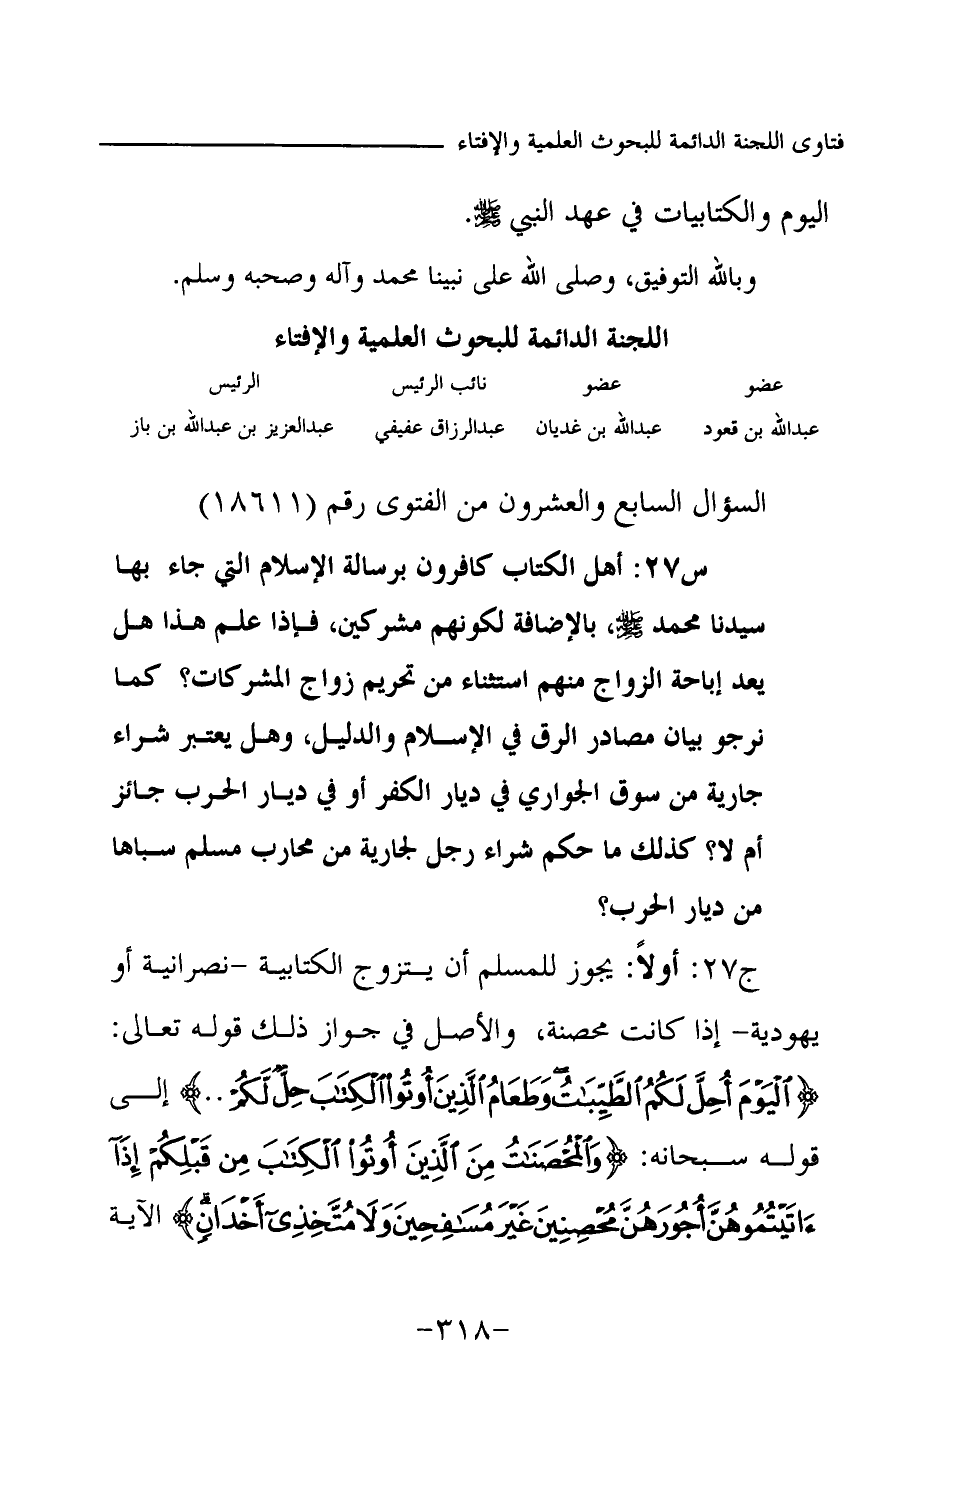 فتاوى اللجنة الدائمة للبحوث العلمية والإفتاء
اليوم والكتابيات في عهد النبي ﷺ.
وبالله التوفيق، وصلى الله على نبينا محمد وآله وصحبه وسلم.
اللجنة الدائمة للبحوث العلمية والإفتاء
عضو عضو نائب الرئيس الرئيس
عبدالله بن قعود عبدالله بن غديان عبدالرزاق عفيفي عبدالعزيز بن عبدالله بن باز
السؤال السابع والعشرون من الفتوى رقم (١٨٦١١)
س٢٧: أهل الكتاب كافرون برسالة الإسلام التي جاء بها
سيدنا محمد ﷺ، بالإضافة لكونهم مشركين، فإذا علم هذا هل
يعد إباحة الزواج منهم استثناء من تحريم زواج المشركات؟ كما
نرجو بيان مصادر الرق في الإسلام والدليل، وهل يعتبر شراء
جارية من سوق الجواري في ديار الكفر أو في ديار الحرب جائز
أم لا؟ كذلك ما حكم شراء رجل لجارية من محارب مسلم سباها
من ديار الحرب؟
ج٢٧: أولاً: يجوز للمسلم أن يتزوج الكتابية -نصرانية أو
يهودية- إذا كانت محصنة، والأصل في جواز ذلك قوله تعالى:
﴿ٱلۡيَوۡمَ أُحِلَّ لَكُمُ ٱلطَّيِّبَٰتُۖ وَطَعَامُ ٱلَّذِينَ أُوتُواْ ٱلۡكِتَٰبَ حِلّٞ لَّكُمۡ ..﴾ إلى
قوله سبحانه: ﴿وَٱلۡمُحۡصَنَٰتُ مِنَ ٱلَّذِينَ أُوتُواْ ٱلۡكِتَٰبَ مِن قَبۡلِكُمۡ إِذَآ
ءَاتَيۡتُمُوهُنَّ أُجُورَهُنَّ مُحۡصِنِينَ غَيۡرَ مُسَٰفِحِينَ وَلَا مُتَّخِذِيٓ أَخۡدَانٖۗ﴾ الآية
-٣١٨-